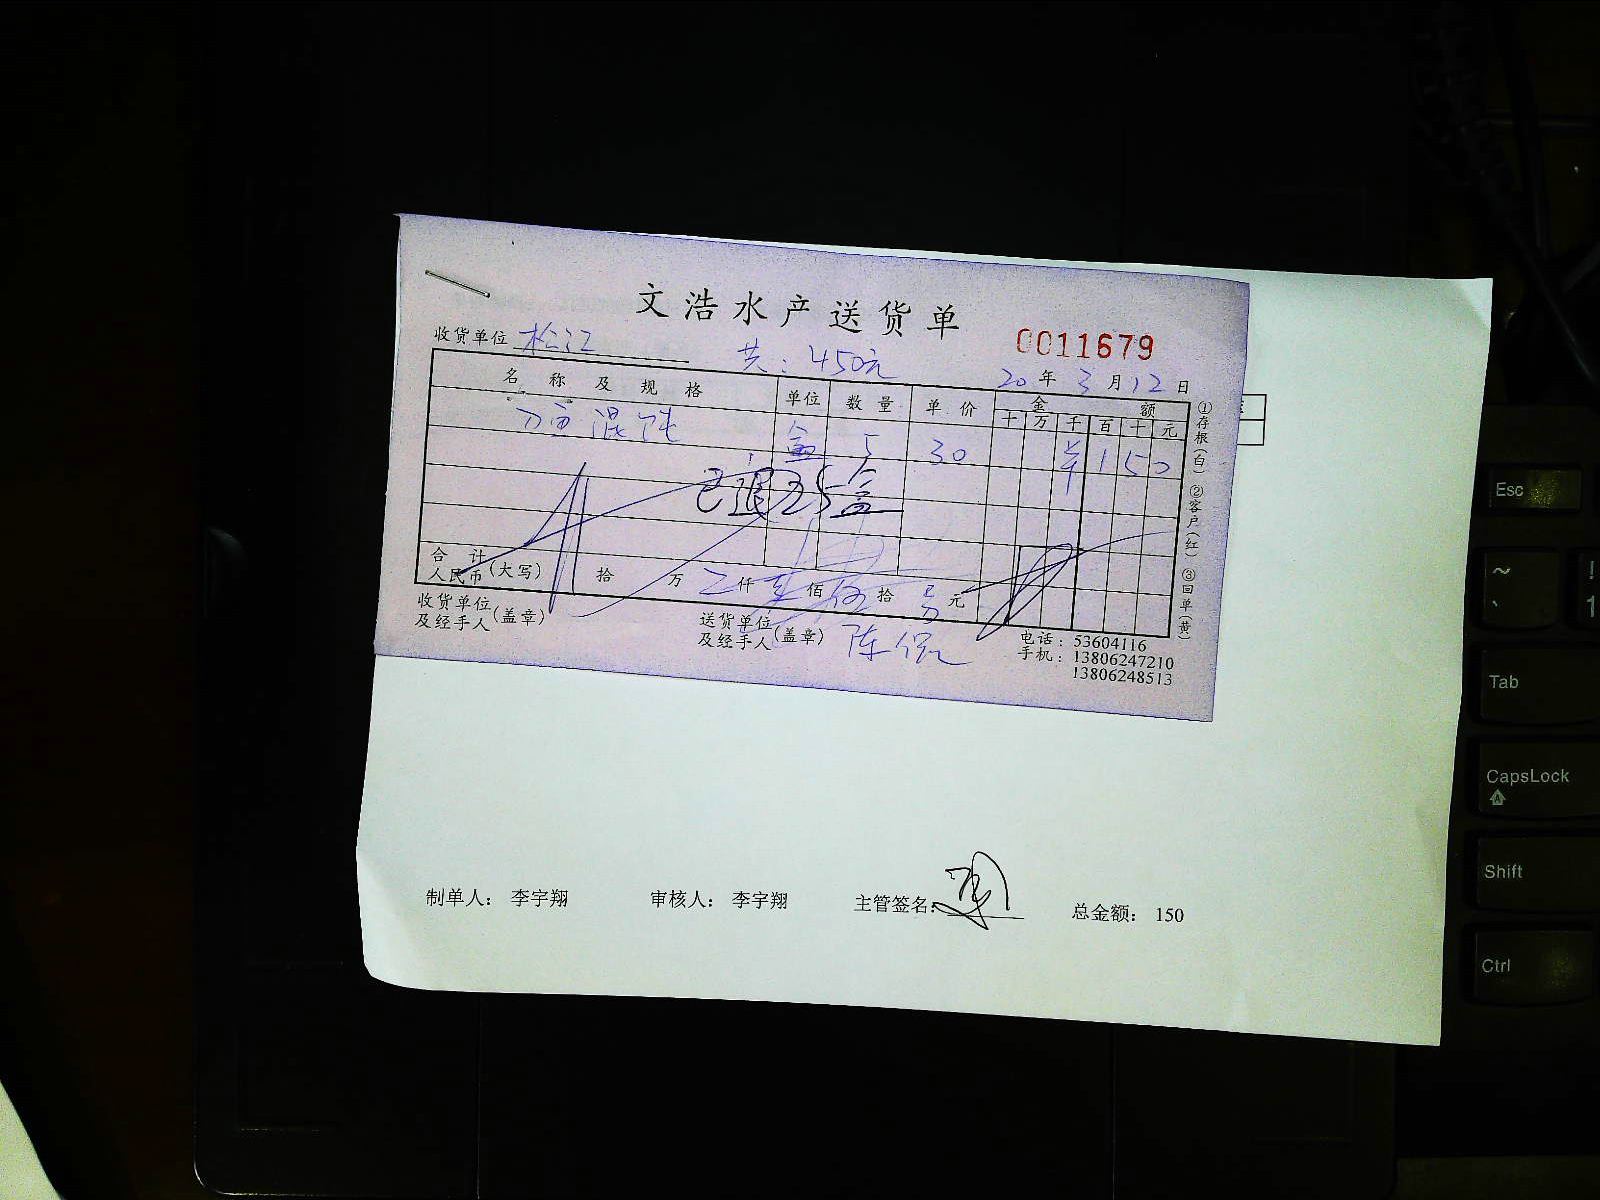 文浩水产送货单
收货单位 松江 共：450元 0011679
20年3月12日
名称及规格 单位 数量 单价 金额
十 万 千 百 十 元
混饨 盒 5 30 150
已退25盒
合计
人民币(大写) 拾 万 仟 佰 拾 元
收货单位
及经手人(盖章)
送货单位
及经手人(盖章) 陈
电话：53604116
手机：13806247210
13806248513
①存根(白) ②客户(红) ③回单(黄)
制单人： 李宇翔 审核人： 李宇翔 主管签名： 总金额： 150
Esc
~
!
1
Tab
CapsLock
Shift
Ctrl